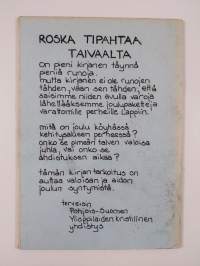 ROSKA TIPAHTAA
TAIVAALTA
On pieni kirjanen täynnä
pieniä runoja.
mutta kirjanen ei ole runojen
tähden, vaan sen tähden, että
saisimme niiden avulla varoja
lähettääksemme joulupaketteja
varattomille perheille Lappiin.
mitä on joulu köyhässä
kehitysalueen perheessä?
onko se pimeän talven valoisa
juhla, vai onko se
ahdistuksen aikaa?
tämän kirjan tarkoitus on
auttaa valoisan ja aidon
joulun syntymistä.
terveisin
Pohjois-Suomen
Ylioppilaiden Kristillinen
yhdistys